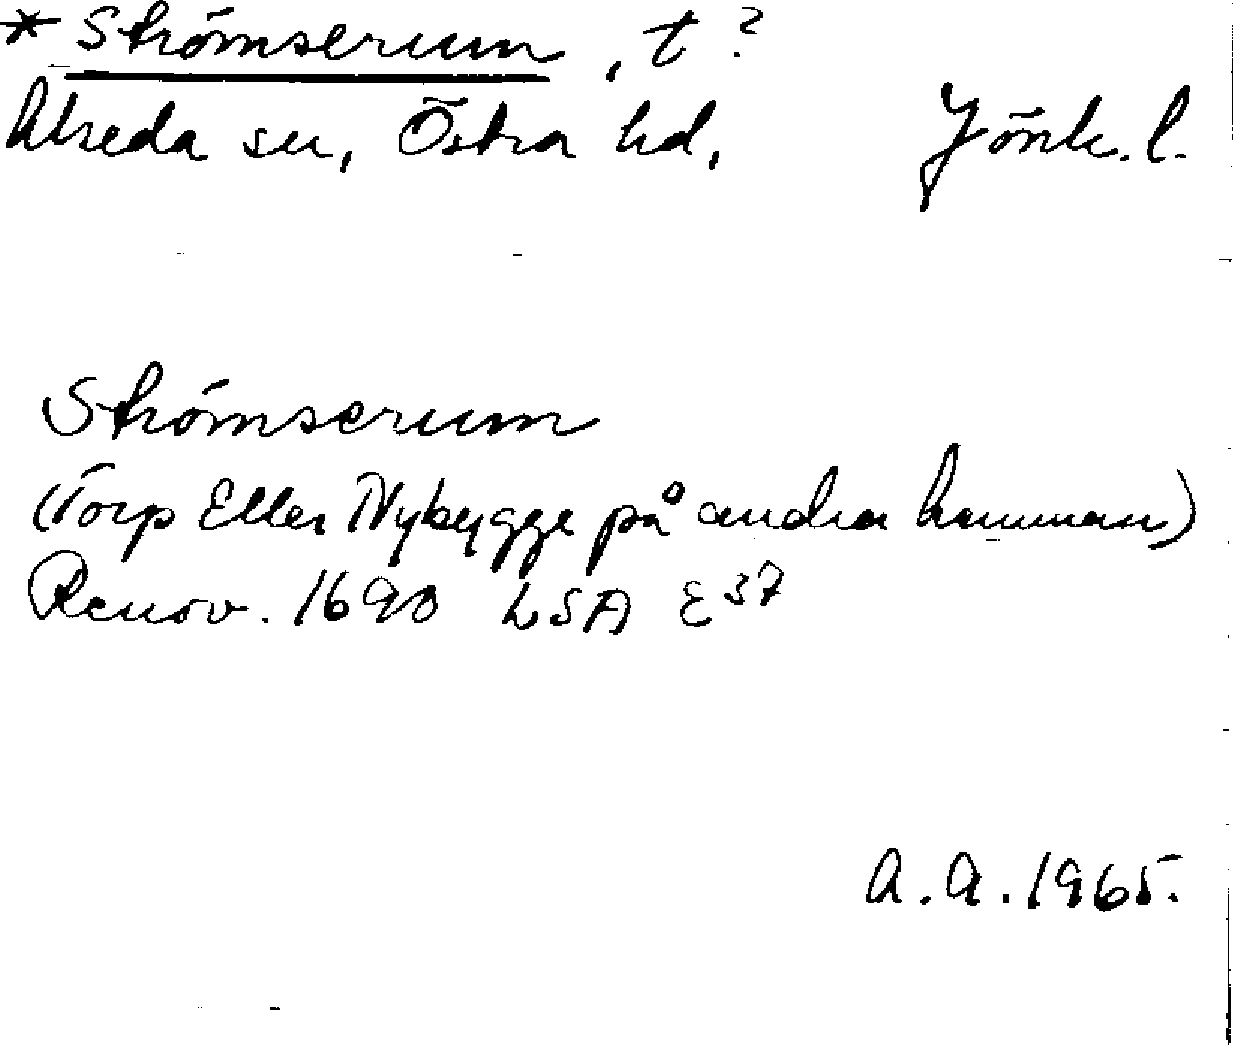 * Strömserum, t?
Alseda sn, Östra hd, Jönk. l.
Strömserum
(Torp Eller Nybygge på andra hamman)
Renov. 1690 LSA E37
A.A. 1965.